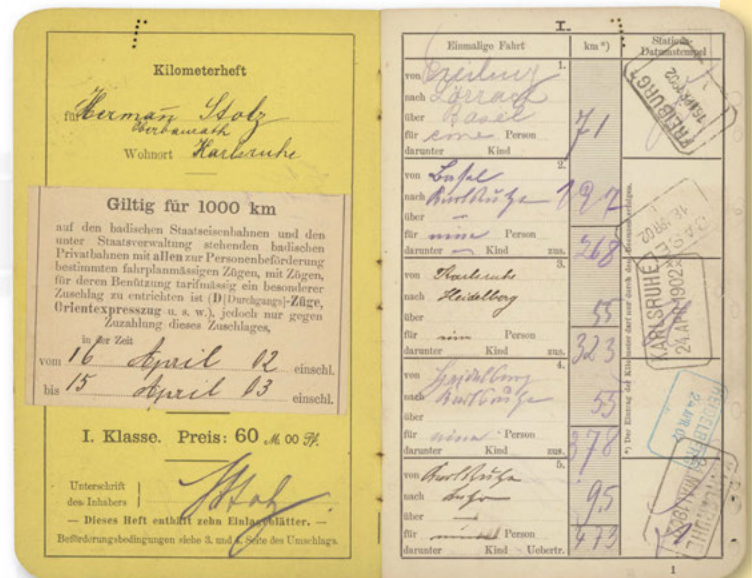 Kilometerheft
für Herman Stolz
Oberbaurath
Wohnort Karlsruhe
Giltig für 1000 km
auf den badischen Staatseisenbahnen und den
unter Staatsverwaltung stehenden badischen
Privatbahnen mit allen zur Personenbeförderung
bestimmten fahrplanmässigen Zügen, mit Zügen,
für deren Benützung tarifmässig ein besonderer
Zuschlag zu entrichten ist (D[Durchgangs]-Züge,
Orientexpresszug u. s. w.), jedoch nur gegen
Zuzahlung dieses Zuschlages,
in der Zeit
vom 16 April 02 einschl.
bis 15 April 03 einschl.
I. Klasse. Preis: 60 M. 00 Pf.
Unterschrift
des Inhabers
Stolz
— Dieses Heft enthält zehn Einlageblätter. —
Beförderungsbedingungen siehe 3. und 4. Seite des Umschlags.
I.
Einmalige Fahrt km *) Stations-
Datumstempel
1.
von
nach Lörrach
über Basel
für eine Person 71
darunter Kind
FREIBURG
15 APR 02
2.
von Basel
nach Karlsruhe 197
über —
für eine Person
darunter — Kind zus. 268
16 APR 02
3.
von Karlsruhe
nach Heidelberg
über 55
für ein Person
darunter Kind zus. 323
KARLSRUHE
24. APR 1902
4.
von Heidelberg
nach Karlsruhe 55
über
für eine Person
darunter Kind zus. 378
HEIDELBERG
24 APR 02
5.
von Karlsruhe
nach 95
über —
für Person
darunter Kind Uebertr. 473
KARLSRUHE
*) Der Eintrag der Kilometer darf nur durch den erfolgen.
1